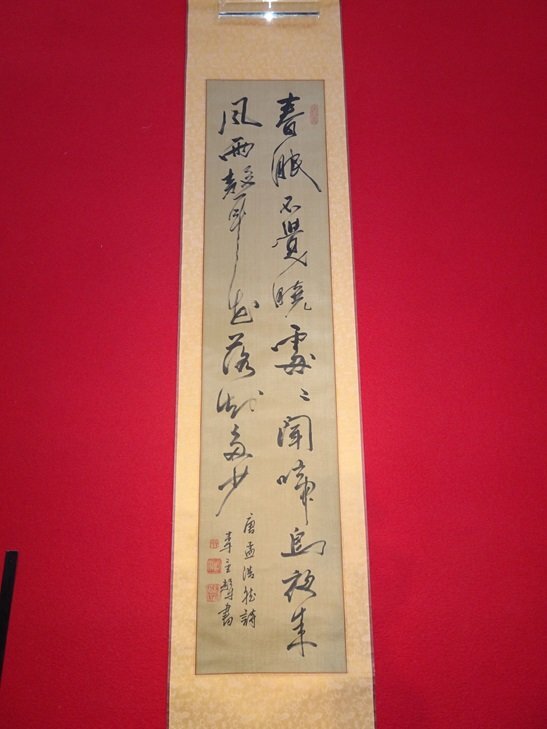 春眠不覺曉處〻聞啼鳥夜来
風雨聲花落知多少
唐孟浩然詩
李書